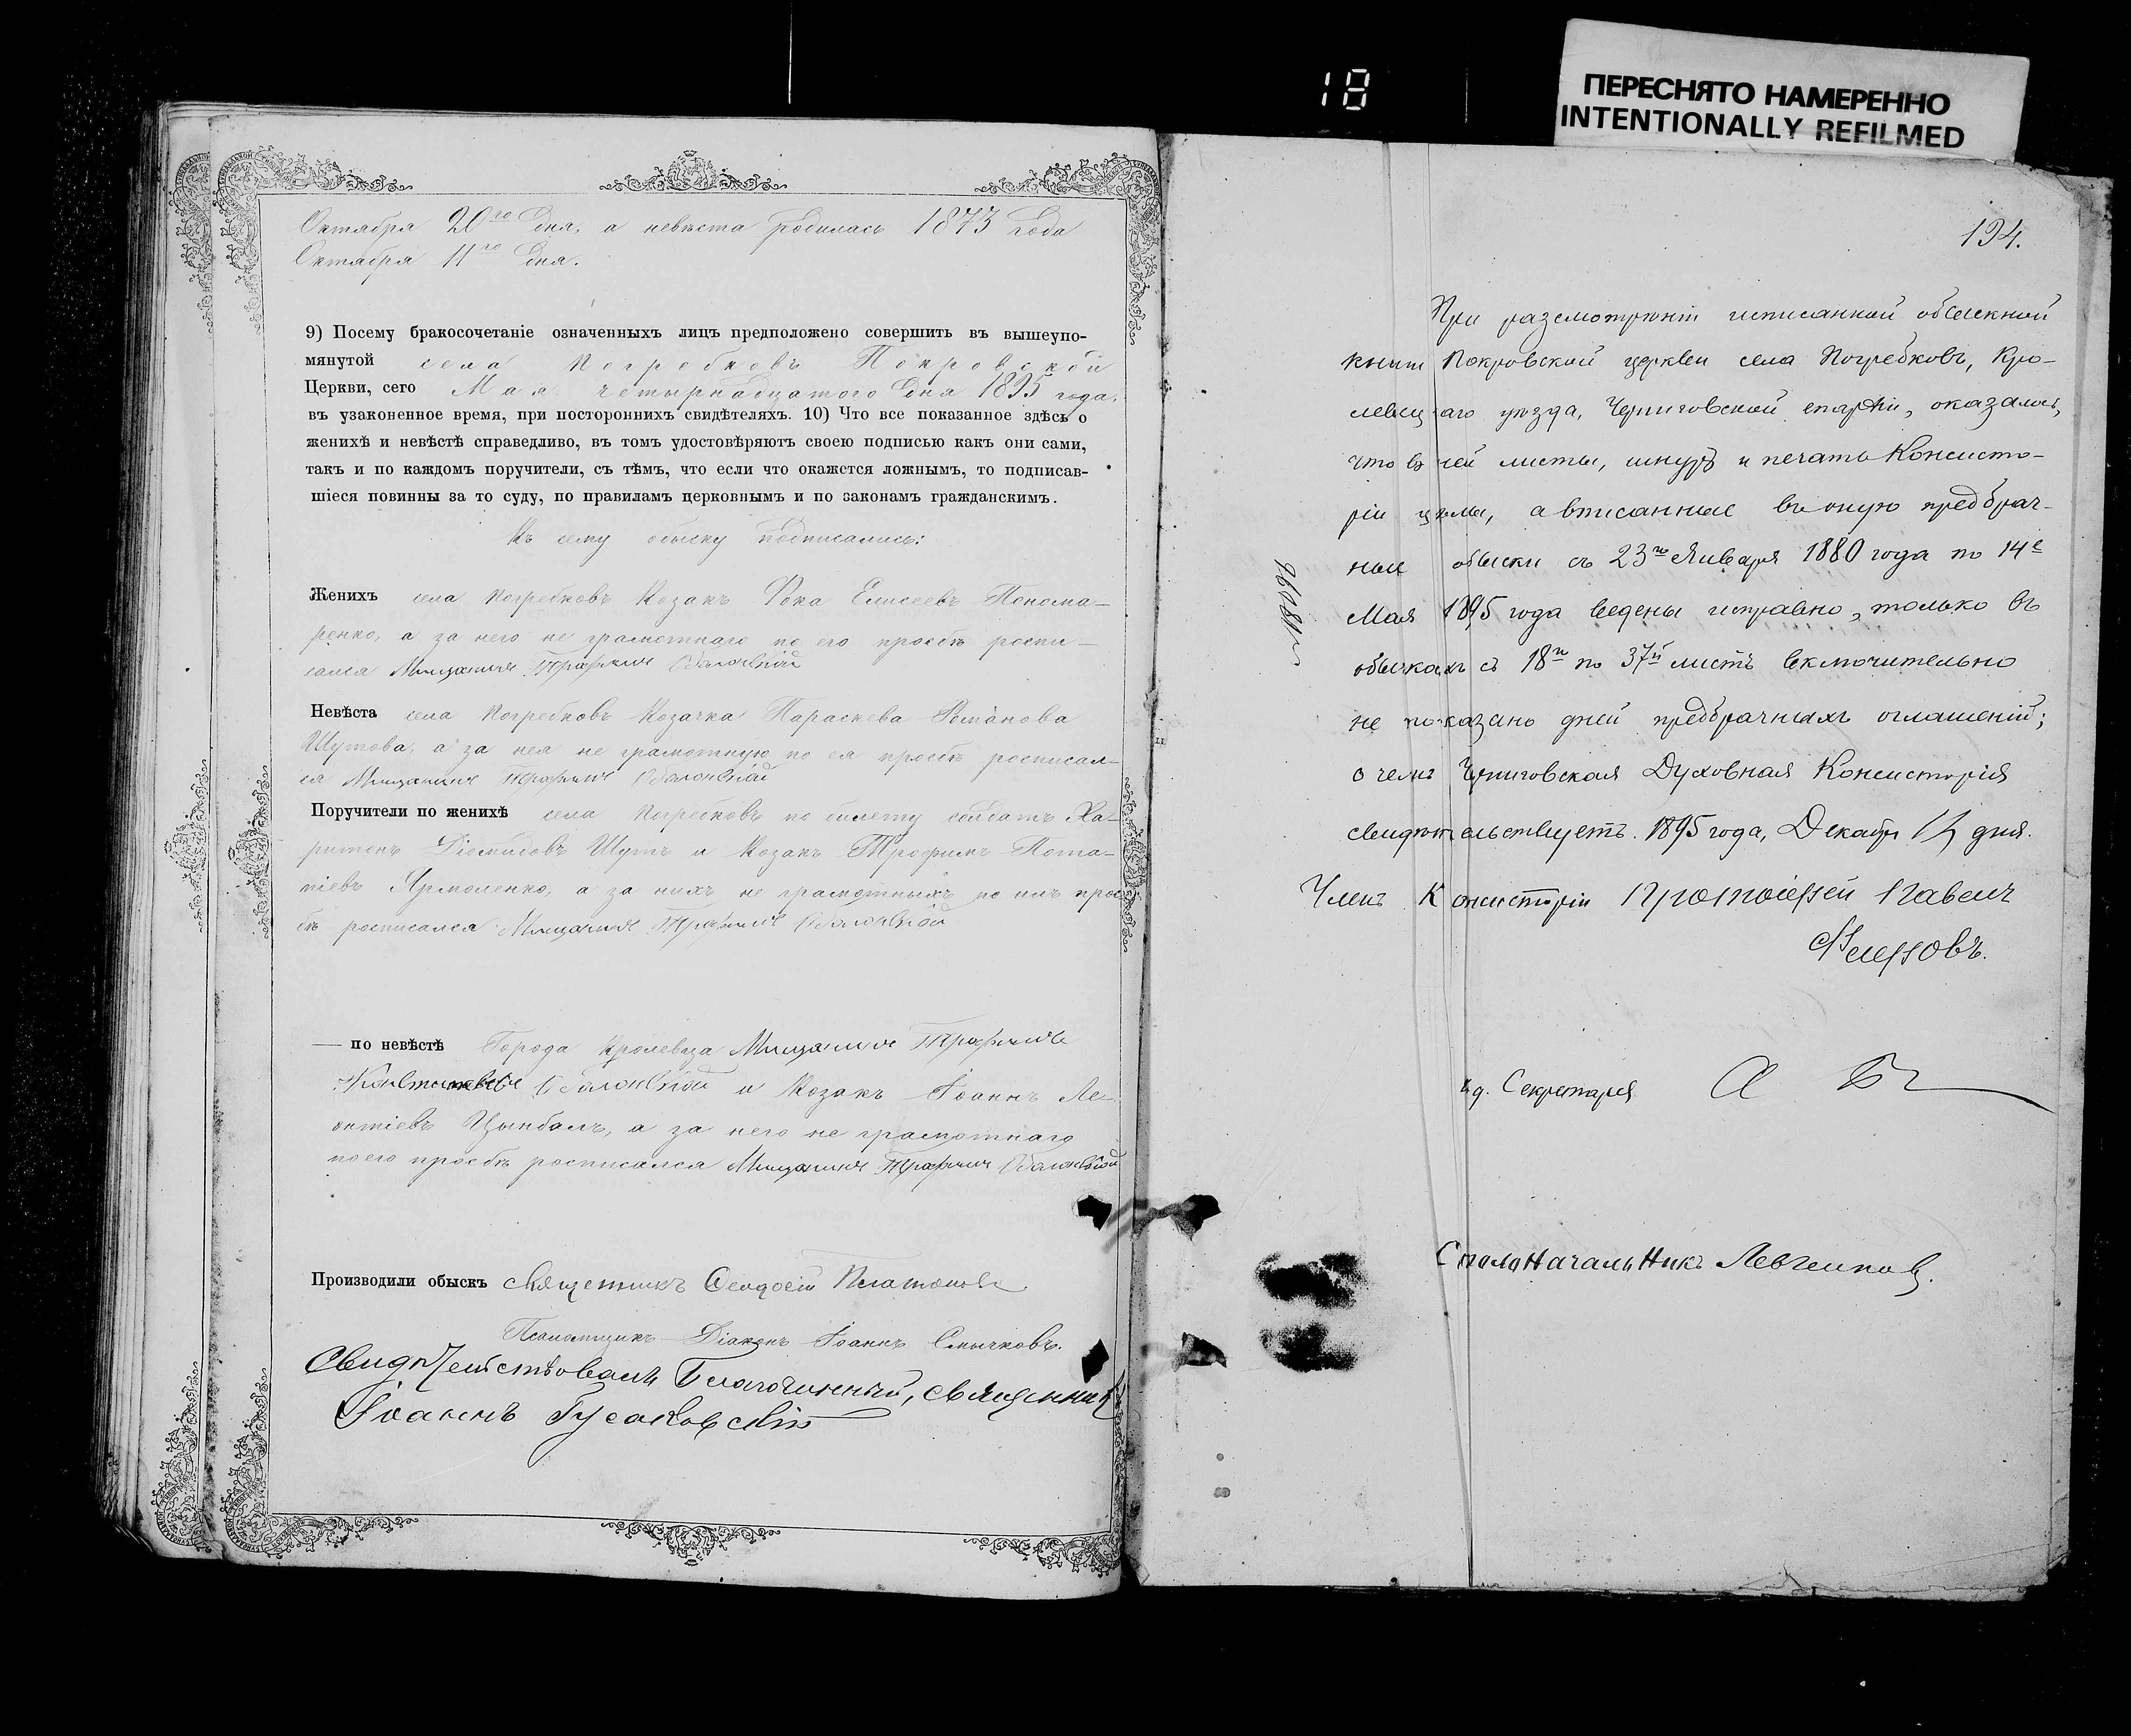 18
ПЕРЕСНЯТО НАМЕРЕННО
INTENTIONALLY REFILMED
Октября 20го дня, а невѣста родилась 1873 года
Октября 11го дня.
9) Посему бракосочетаніе означенныхъ лицъ предположено совершить въ вышеупо-
мянутой села Погребковъ Покровской
Церкви, сего Мая четырнадцатого дня 1895 года,
въ узаконенное время, при постороннихъ свидѣтеляхъ. 10) Что все показанное здѣсь о
женихѣ и невѣстѣ справедливо, въ томъ удостовѣряютъ своею подписью какъ они сами,
такъ и по каждомъ поручители, съ тѣмъ, что если что окажется ложнымъ, то подписав-
шіеся повинны за то суду, по правиламъ церковнымъ и по законамъ гражданскимъ.
Къ сему обыску подписались:
Женихъ села Погребковъ Козакъ Фока Елисеевъ Понома-
ренко, а за него не грамотнаго по его просьбѣ роспи-
сался Мищанинъ Трофимъ
Невѣста села Погребковъ Козачка Параскева Романова
Шутова, а за нея не грамотную по ея просьбѣ росписал-
ся Мищанинъ Трофимъ
Поручители по женихѣ села Погребковъ по билету солдатъ Ха-
ритонъ Діомидовъ Шутъ и Козакъ Трофимъ Пота-
піевъ Ярмоленко, а за нихъ не грамотныхъ по ихъ прос-
бѣ росписался Мищанинъ Трофимъ
— по невѣстѣ Города Кролевца Мищанинъ Трофимъ
и Козакъ Іоаннъ Ле-
онтіевъ Цымбалъ, а за него не грамотнаго
по его просьбѣ росписался Мищанинъ Трофимъ
Производили обыскъ Священникъ Ѳеодосій Платоновъ
Псаломщикъ-Діаконъ Іоаннъ Смычковъ.
Свидѣтельствовалъ Благочинный, священникъ
Іоаннъ Гусаковскій
194.
При разсмотрѣніи исписанной обыскной
книги Покровской церкви села Погребковъ, Кро-
левецкаго уѣзда, Черниговской епархіи, оказалось,
что въ ней листы, шнуръ и печать Консисто-
ріи цѣлы, а вписанные въ оную предбрач-
ные обыски съ 23го Января 1880 года по 14е
Мая 1895 года ведены исправно, только въ
обыскахъ съ 18го по 37й листъ включительно
не показано дней предбрачныхъ оглашеній;
о чемъ Черниговская Духовная Консисторія
свидѣтельствуетъ. 1895 года, Декабря дня.
Членъ Консисторіи Протоіерей Павелъ
И.д. Секретаря
Столоначальникъ